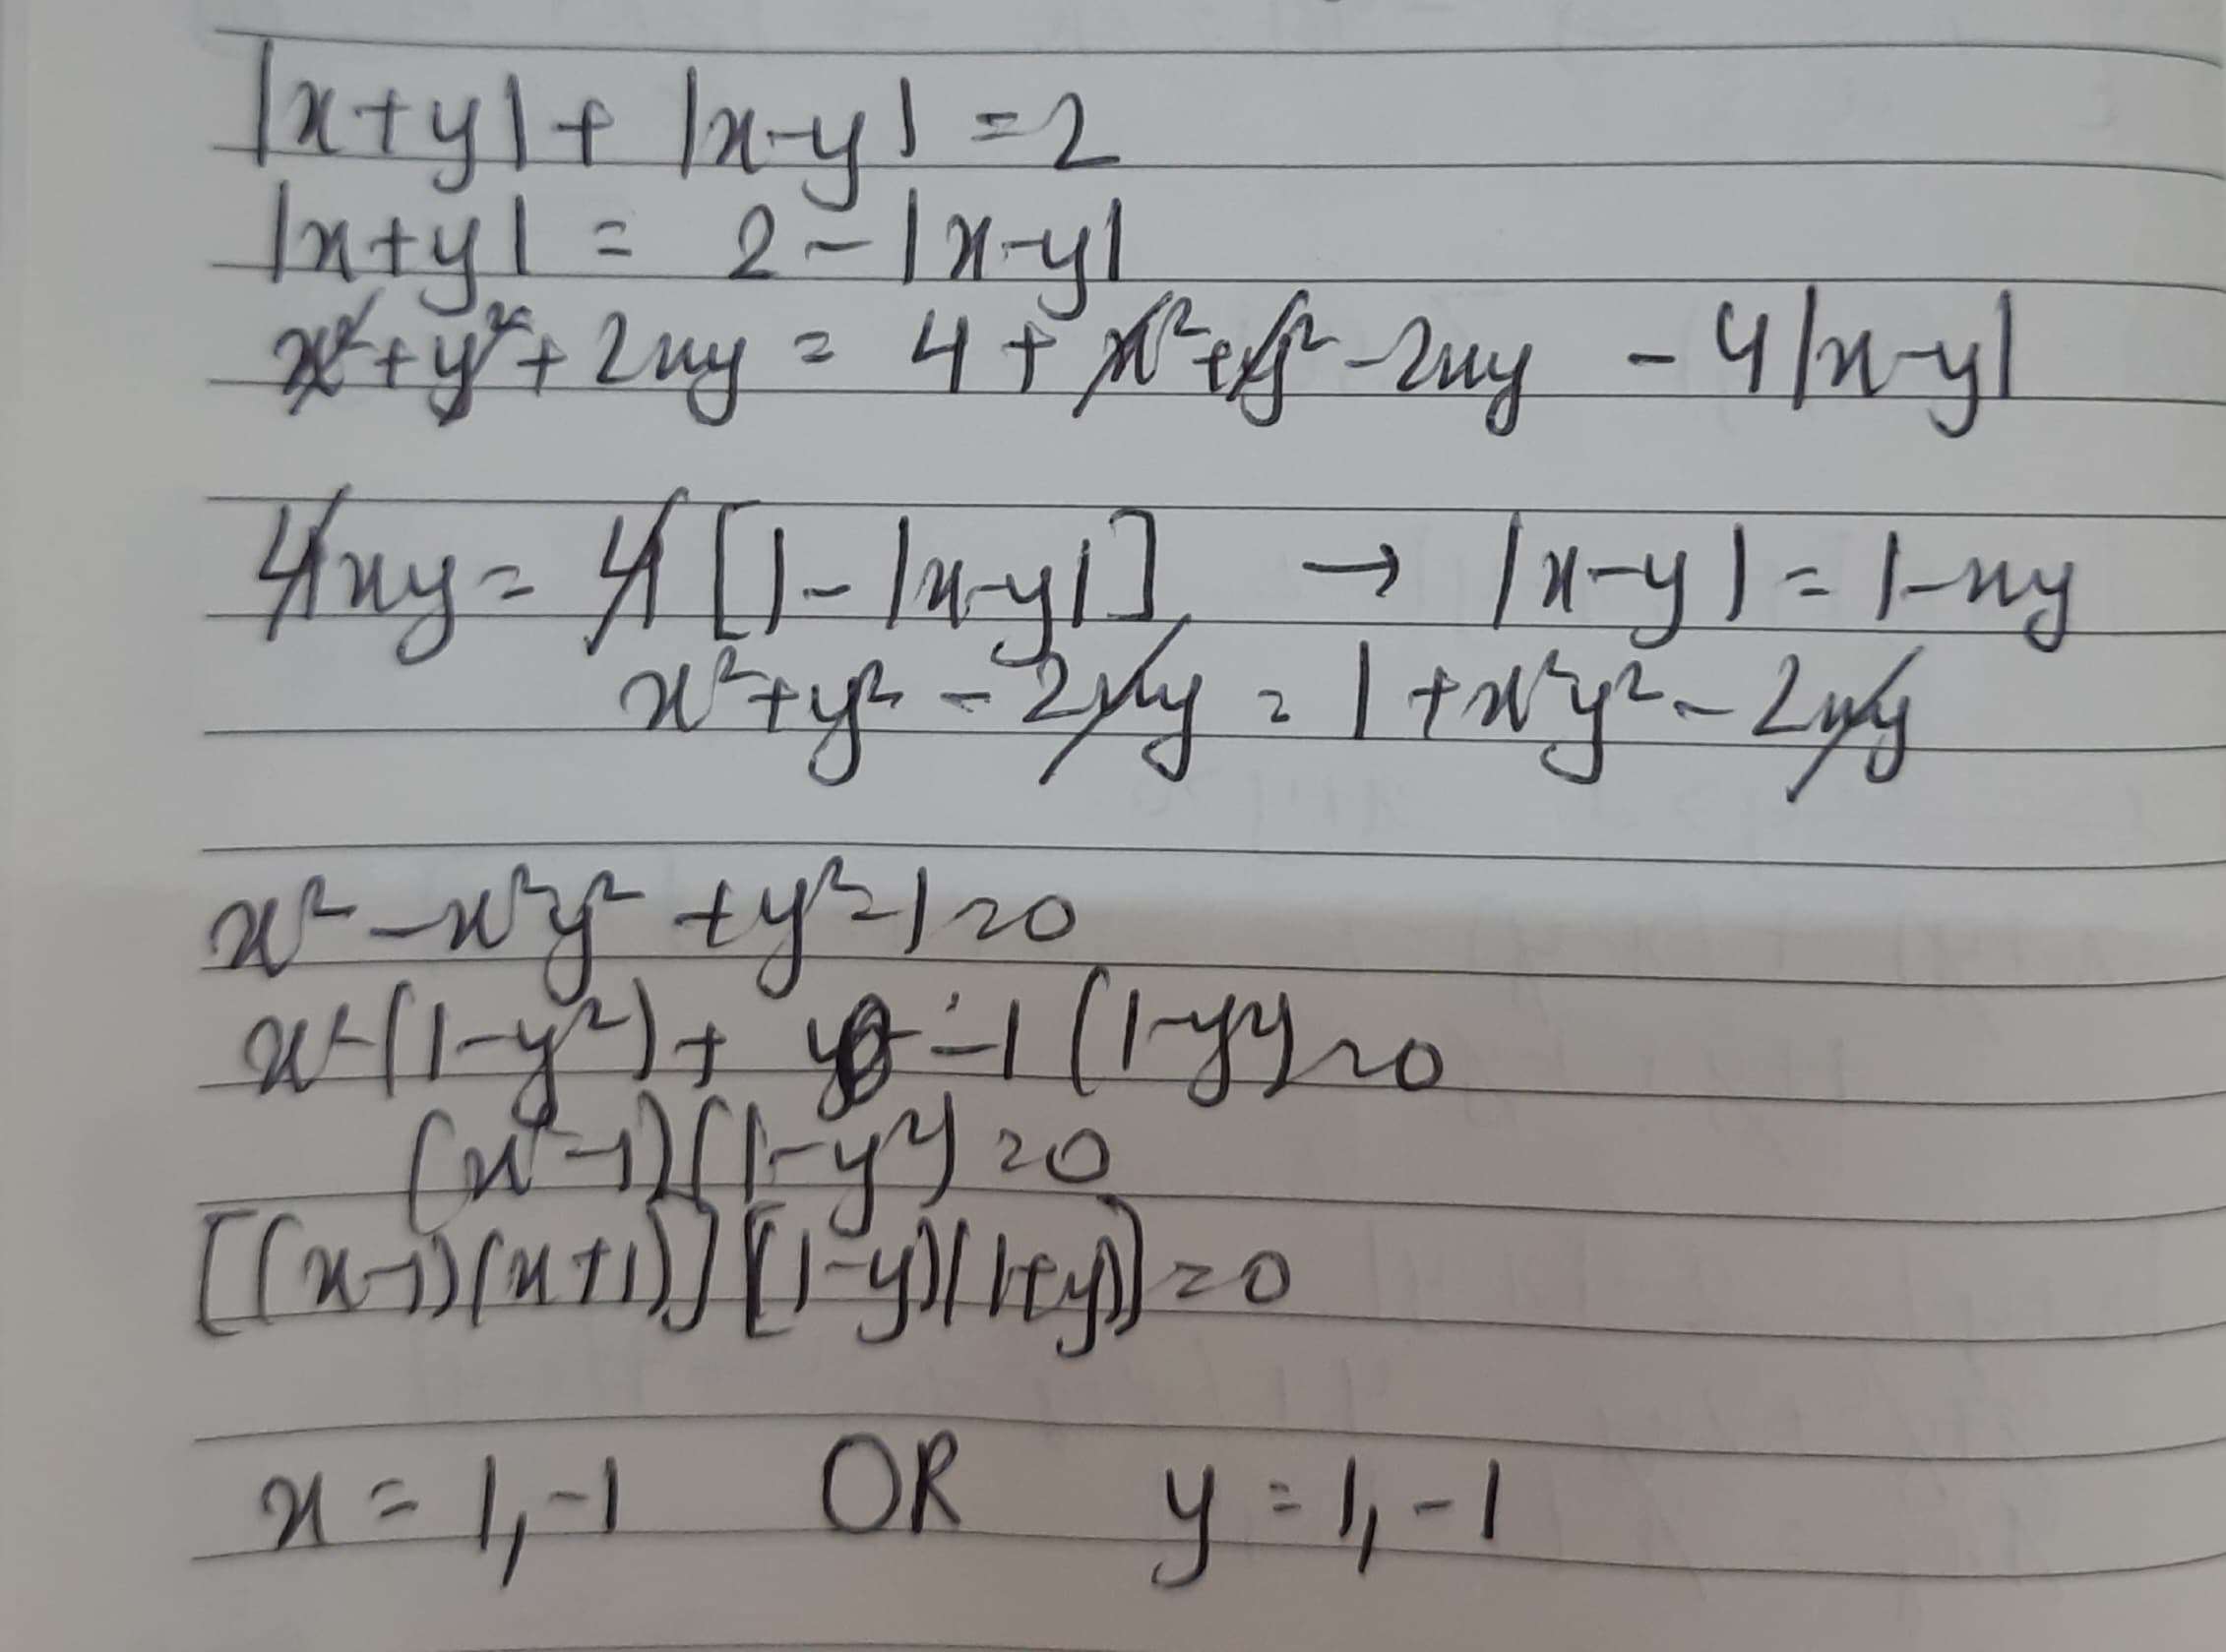 |x+y| + |x-y| = 2
|x+y| = 2 - |x-y|
x²+y²+2xy = 4 + x²+y²-2xy - 4|x-y|
4xy = 4[1-|x-y|] → |x-y| = 1-xy
x²+y²-2xy = 1+x²y²-2xy
x²-x²y²+y²-1=0
x²(1-y²)+ -1(1-y²)=0
(x²-1)(1-y²)=0
[(x-1)(x+1)][(1-y)(1+y)]=0
x = 1,-1 OR y = 1,-1